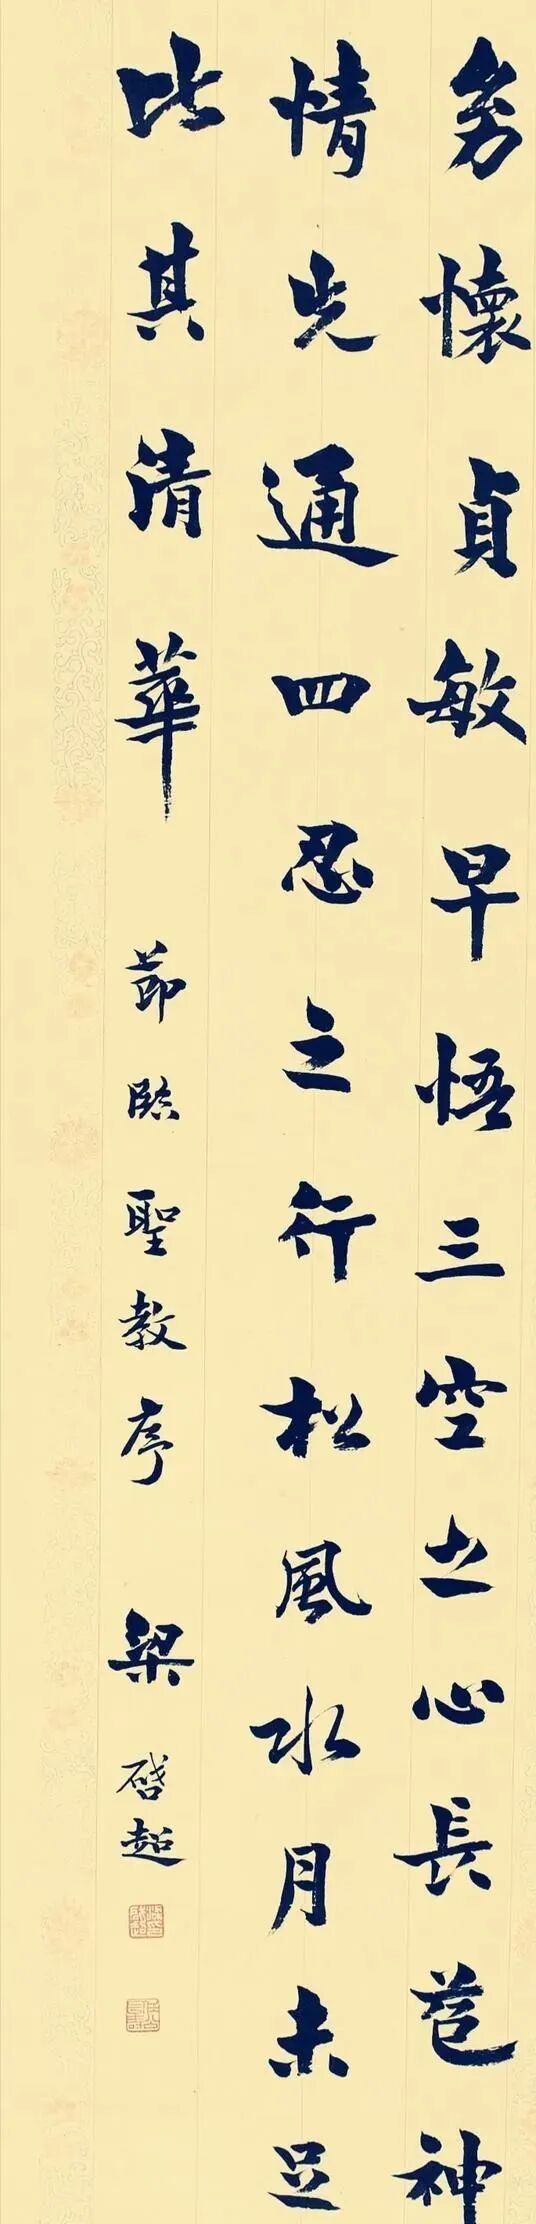 㓜懷貞敏早悟三空之心長苞神
情先通四忍之行松風水月未足
比其清華
節臨聖教序
梁啓超